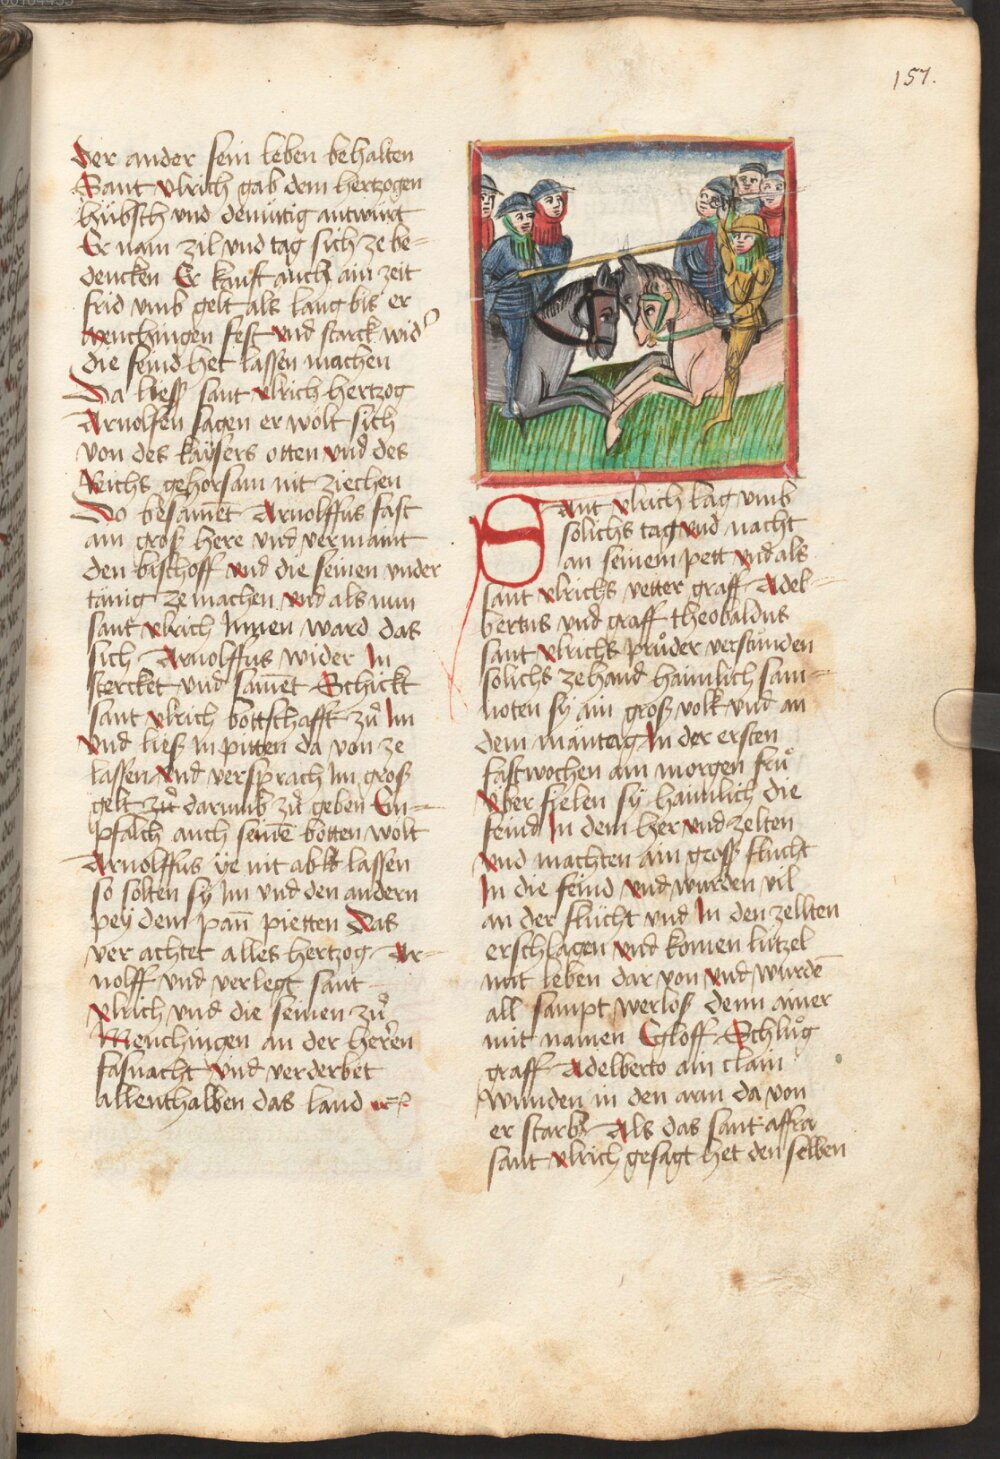 157.
der ander sein leben behalten
Sant vlrich gab dem hertzogen
hübsch vnd demüttig antwürt
Er nam zil vnd tag sich ze be=
dencken Er kauft auch ain zeit
frid vmb gelt als lang bis er
menchingen fest vnd starck wid
die feind het lassen machen
Da liess sant vlrich hertzog
Arnolfen sagen er wolt sich
von des kaÿsers otten vnd des
Reichs gehorsam nit ziechen
Do besam̄et Arnolffus fast
ain groß here vnd vermaint
den bischoff vnd die seinen vnder
tänig ze machen vnd als nun
sant vlrich Innen ward das
sich Arnolffus wider In
stercket vnd sam̄et Schickt
sant vlrich bottschafft zů Im
vnd ließ in pitten da von ze
lassen vnd versprach Im groß
gelt zů darumb zů geben En=
pfalch auch seinē botten wolt
Arnolffus ÿe nit ab lassen
so solten sy Im vnd den andern
pey dem pan̄ pietten Das
ver achtet alles hertzog Ar=
nolff vnd verlegt sant
vlrich vnd die seinen zů
Menchingen an der herēn
fasnacht vnd verderbet
allenthalben das land
Sant vlrich lag vmb
solichs tag vnd nacht
an seinem pett vnd als
sant vlrichs vetter graff Adel=
bertus vnd graff theobaldus
sant vlrichs průder verstůnden
solichs zehand haimlich sam=
noten sy ain groß volk vnd an
dem mäntag In der ersten
fastwochen am morgen frů
vber fielen sy haimlich die
feind In dem her vnd zelten
vnd machten ain gross flucht
In die feind vnd wurden vil
an der flücht vnd In den zellten
erschlagen vnd komen lützel
mit leben dar von vnd wurdē
all sampt werlos denn ainer
mit namen Egloff Schlůg
graff Adelberto ain clain
wunden in den arm da von
er starb Als das sant affra
sant vlrich gesagt het den selben